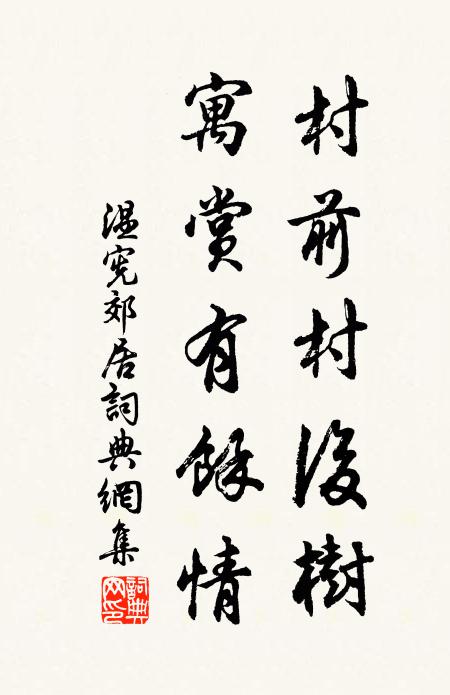 村前村後樹
寓賞有餘情
温憲郊居詞典網集
詞典網印